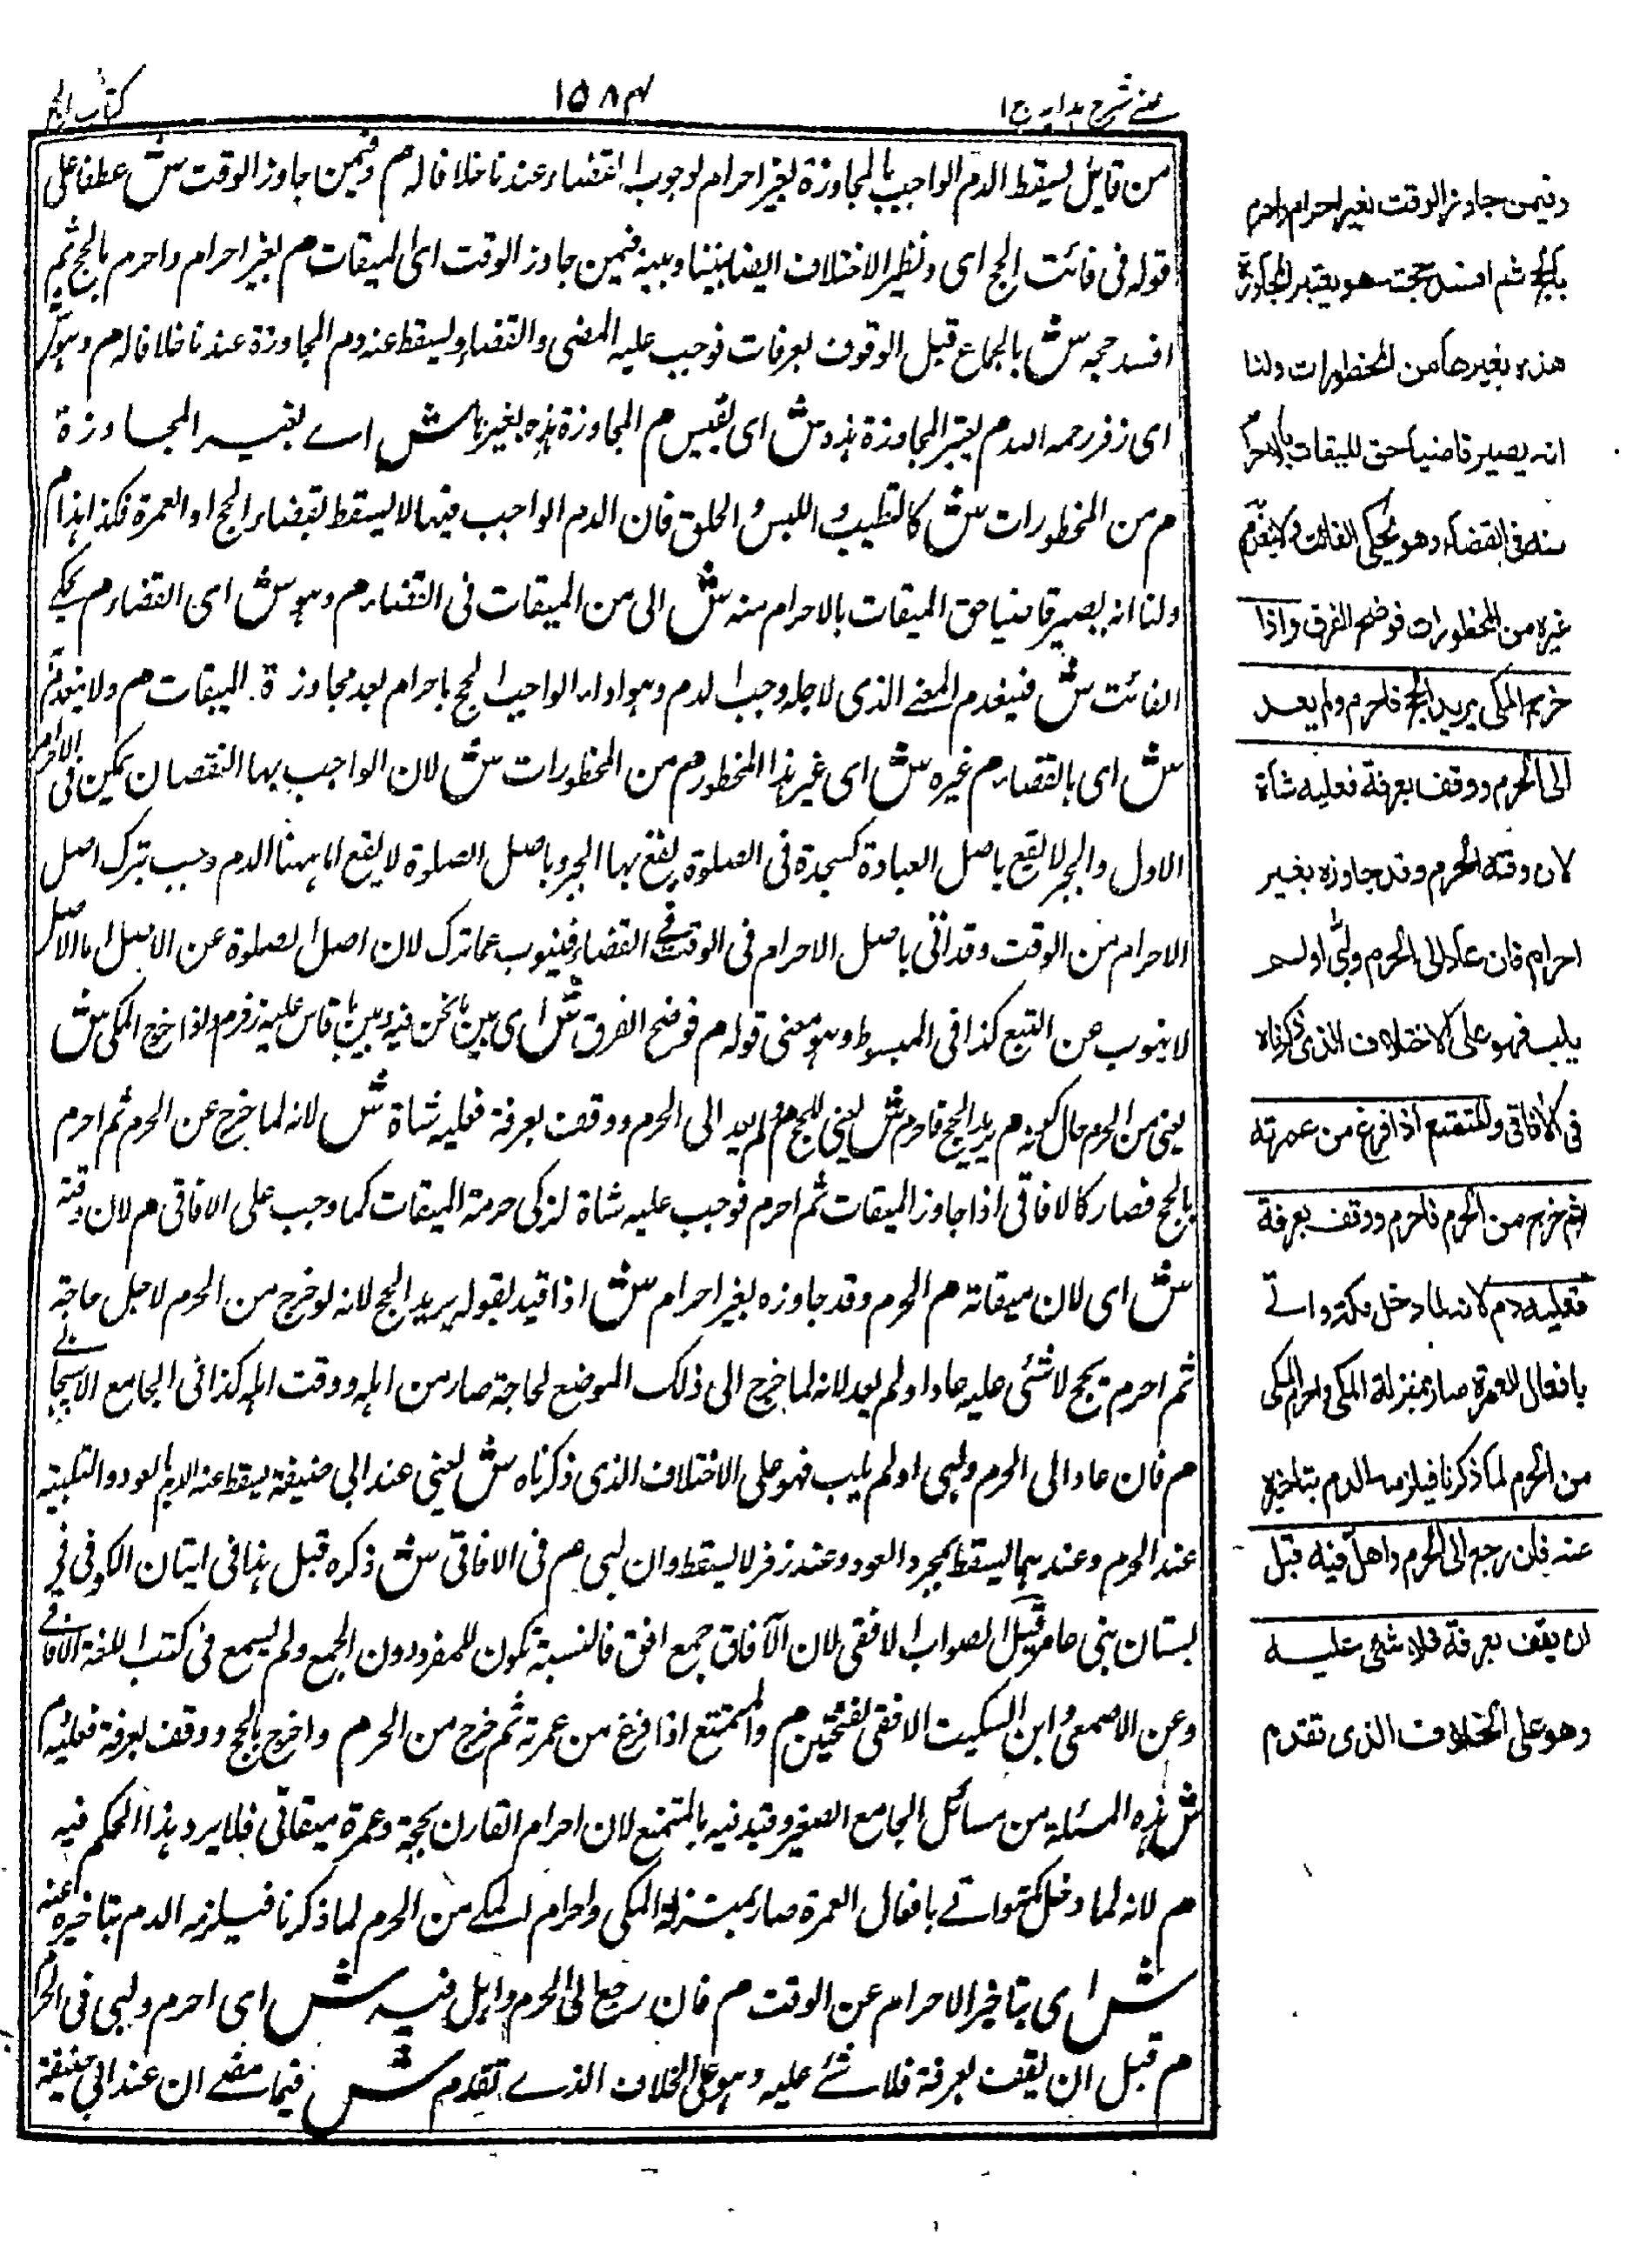 عینی شرح ہدایہ ج ۱
۱۵۸۴
کتاب الحج
من قابل یسقط الدم الواجب بالمجاوزة بغیر احرام لوجوب القضاء عندنا خلافا له م وفیمن جاوز الوقت ش عطفا علی
قوله فی فائت الحج ای ونظیر الاختلاف ایضا بیننا وبینه فیمن جاوز الوقت ای المیقات م بغیر احرام واحرم بالحج ثم
افسد حجه ش بالجماع قبل الوقوف بعرفات فوجب علیه المضی والقضاء ویسقط عنه دم المجاوزة عندنا خلافا له م وهو
ای زفر رحمه الله م یعتبر المجاوزة هذه ش ای یقیس م المجاوزة هذه بغیرها ش ای بغیر المجاوزة
م من المحظورات ش کالتطیب واللبس والحلق فان الدم الواجب فیها لا یسقط بقضاء الحج او العمرة فکذا هذا م
ولنا انه یصیر قاضیا حق المیقات بالاحرام منه ش ای من المیقات فی القضاء م وهو ش ای القضاء م یحکی
الفائت ش فینعدم المعنی الذی لاجله وجب الدم وهو اداء الواجب الحج باحرام بعد مجاوزة المیقات م ولا ینعدم
ش ای بالقضاء م غیره ش ای غیر هذا المحظور م من المحظورات ش لان الواجب بها النقصان تمکن فی الاحرام
الاول والجبر لا یقع باصل العبادة کسجدة فی الصلوة یقع بها الجبر وباصل الصلوة لا یقع اما ههنا الدم وجب بترک اصل
الاحرام من الوقت وقد اتی باصل الاحرام فی الوقت فی القضاء فینوب عما ترک لان اصل الصلوة عن الاصل اما الاصل
لا ینوب عن التبع کذا فی المبسوط وهو معنی قوله م فوضح الفرق ش ای بین ما نحن فیه وبین ما قاس علیه زفر م واذا خرج المکی ش
یعنی من الحرم حال کونه م یرید الحج فاحرم ش یعنی للحج م ولم یعد الی الحرم ووقف بعرفة فعلیه شاة ش لانه لما خرج عن الحرم ثم احرم
بالحج فصار کالافاقی اذا جاوز المیقات ثم احرم فوجب علیه شاة لترکه حرمة المیقات کما وجب علی الافاقی م لان وقته
ش ای لان میقاته م الحرم وقد جاوزه بغیر احرام ش اذا قید بقوله یرید الحج لانه لو خرج من الحرم لاجل حاجة
ثم احرم بحج لا شئی علیه عاد او لم یعد لانه لما خرج الی ذلک الموضع لحاجة صار من اهله ووقت اهله کذا فی الجامع الاسبیجابی
م فان عاد الی الحرم ولبی او لم یلب فهو علی الاختلاف الذی ذکرناه ش یعنی عند ابی حنیفة یسقط عنه الدم بالعود والتلبیة
عند الحرم وعندهما یسقط بمجرد العود وعند زفر لا یسقط وان لبی م فی الافاقی ش ذکره قبل هذا فی اتیان الکوفی فی
بستان بنی عامر وقیل الصواب الافقی لان الآفاق جمع افق فالنسبة تکون للمفرد دون الجمع ولم یسمع فی کتب اللغة الافاقی
وعن الاصمعی وابن السکیت الافقی بفتحتین م والمتمتع اذا فرغ من عمرته ثم خرج من الحرم واخرج بالحج ووقف بعرفة فعلیه دم
ش هذه المسئلة من مسائل الجامع الصغیر وقید فیه بالمتمتع لان احرام القارن بحجة وعمرة میقاتی فلا یرد هذا الحکم فیه
م لانه لما دخل مکة واتی بافعال العمرة صار بمنزلة المکی واحرام المکی من الحرم لما ذکرنا فیلزمه الدم بتاخیره عنه
ش ای بتاخیر الاحرام عن الوقت م فان رجع الی الحرم واهل فیه ش ای احرم ولبی فی الحرم
م قبل ان یقف بعرفة فلا شئ علیه وهو علی الخلاف الذی تقدم ش فیما مضی ان عند ابی حنیفة
وفیمن جاوز الوقت بغیر احرام واحرم
بالحج ثم افسد حجته هو یعتبر المجاوزة
هذه بغیرها من المحظورات ولنا
انه یصیر قاضیا حق المیقات بالاحرام
منه فی القضاء وهو یحکی الفائت ولا ینعدم
غیره من المحظورات فوضح الفرق واذا
خرج المکی یرید الحج فاحرم ولم یعد
الی الحرم ووقف بعرفة فعلیه شاة
لان وقته الحرم وقد جاوزه بغیر
احرام فان عاد الی الحرم ولبی او لم
یلب فهو علی الاختلاف الذی ذکرناه
فی الآفاقی والمتمتع اذا فرغ من عمرته
ثم خرج من الحرم فاحرم ووقف بعرفة
فعلیه دم لانه لما دخل مکة واتی
بافعال العمرة صار بمنزلة المکی واحرام المکی
من الحرم لما ذکرنا فیلزمه الدم بتاخیره
عنه فان رجع الی الحرم واهل فیه قبل
ان یقف بعرفة فلا شئ علیه
وهو علی الخلاف الذی تقدم